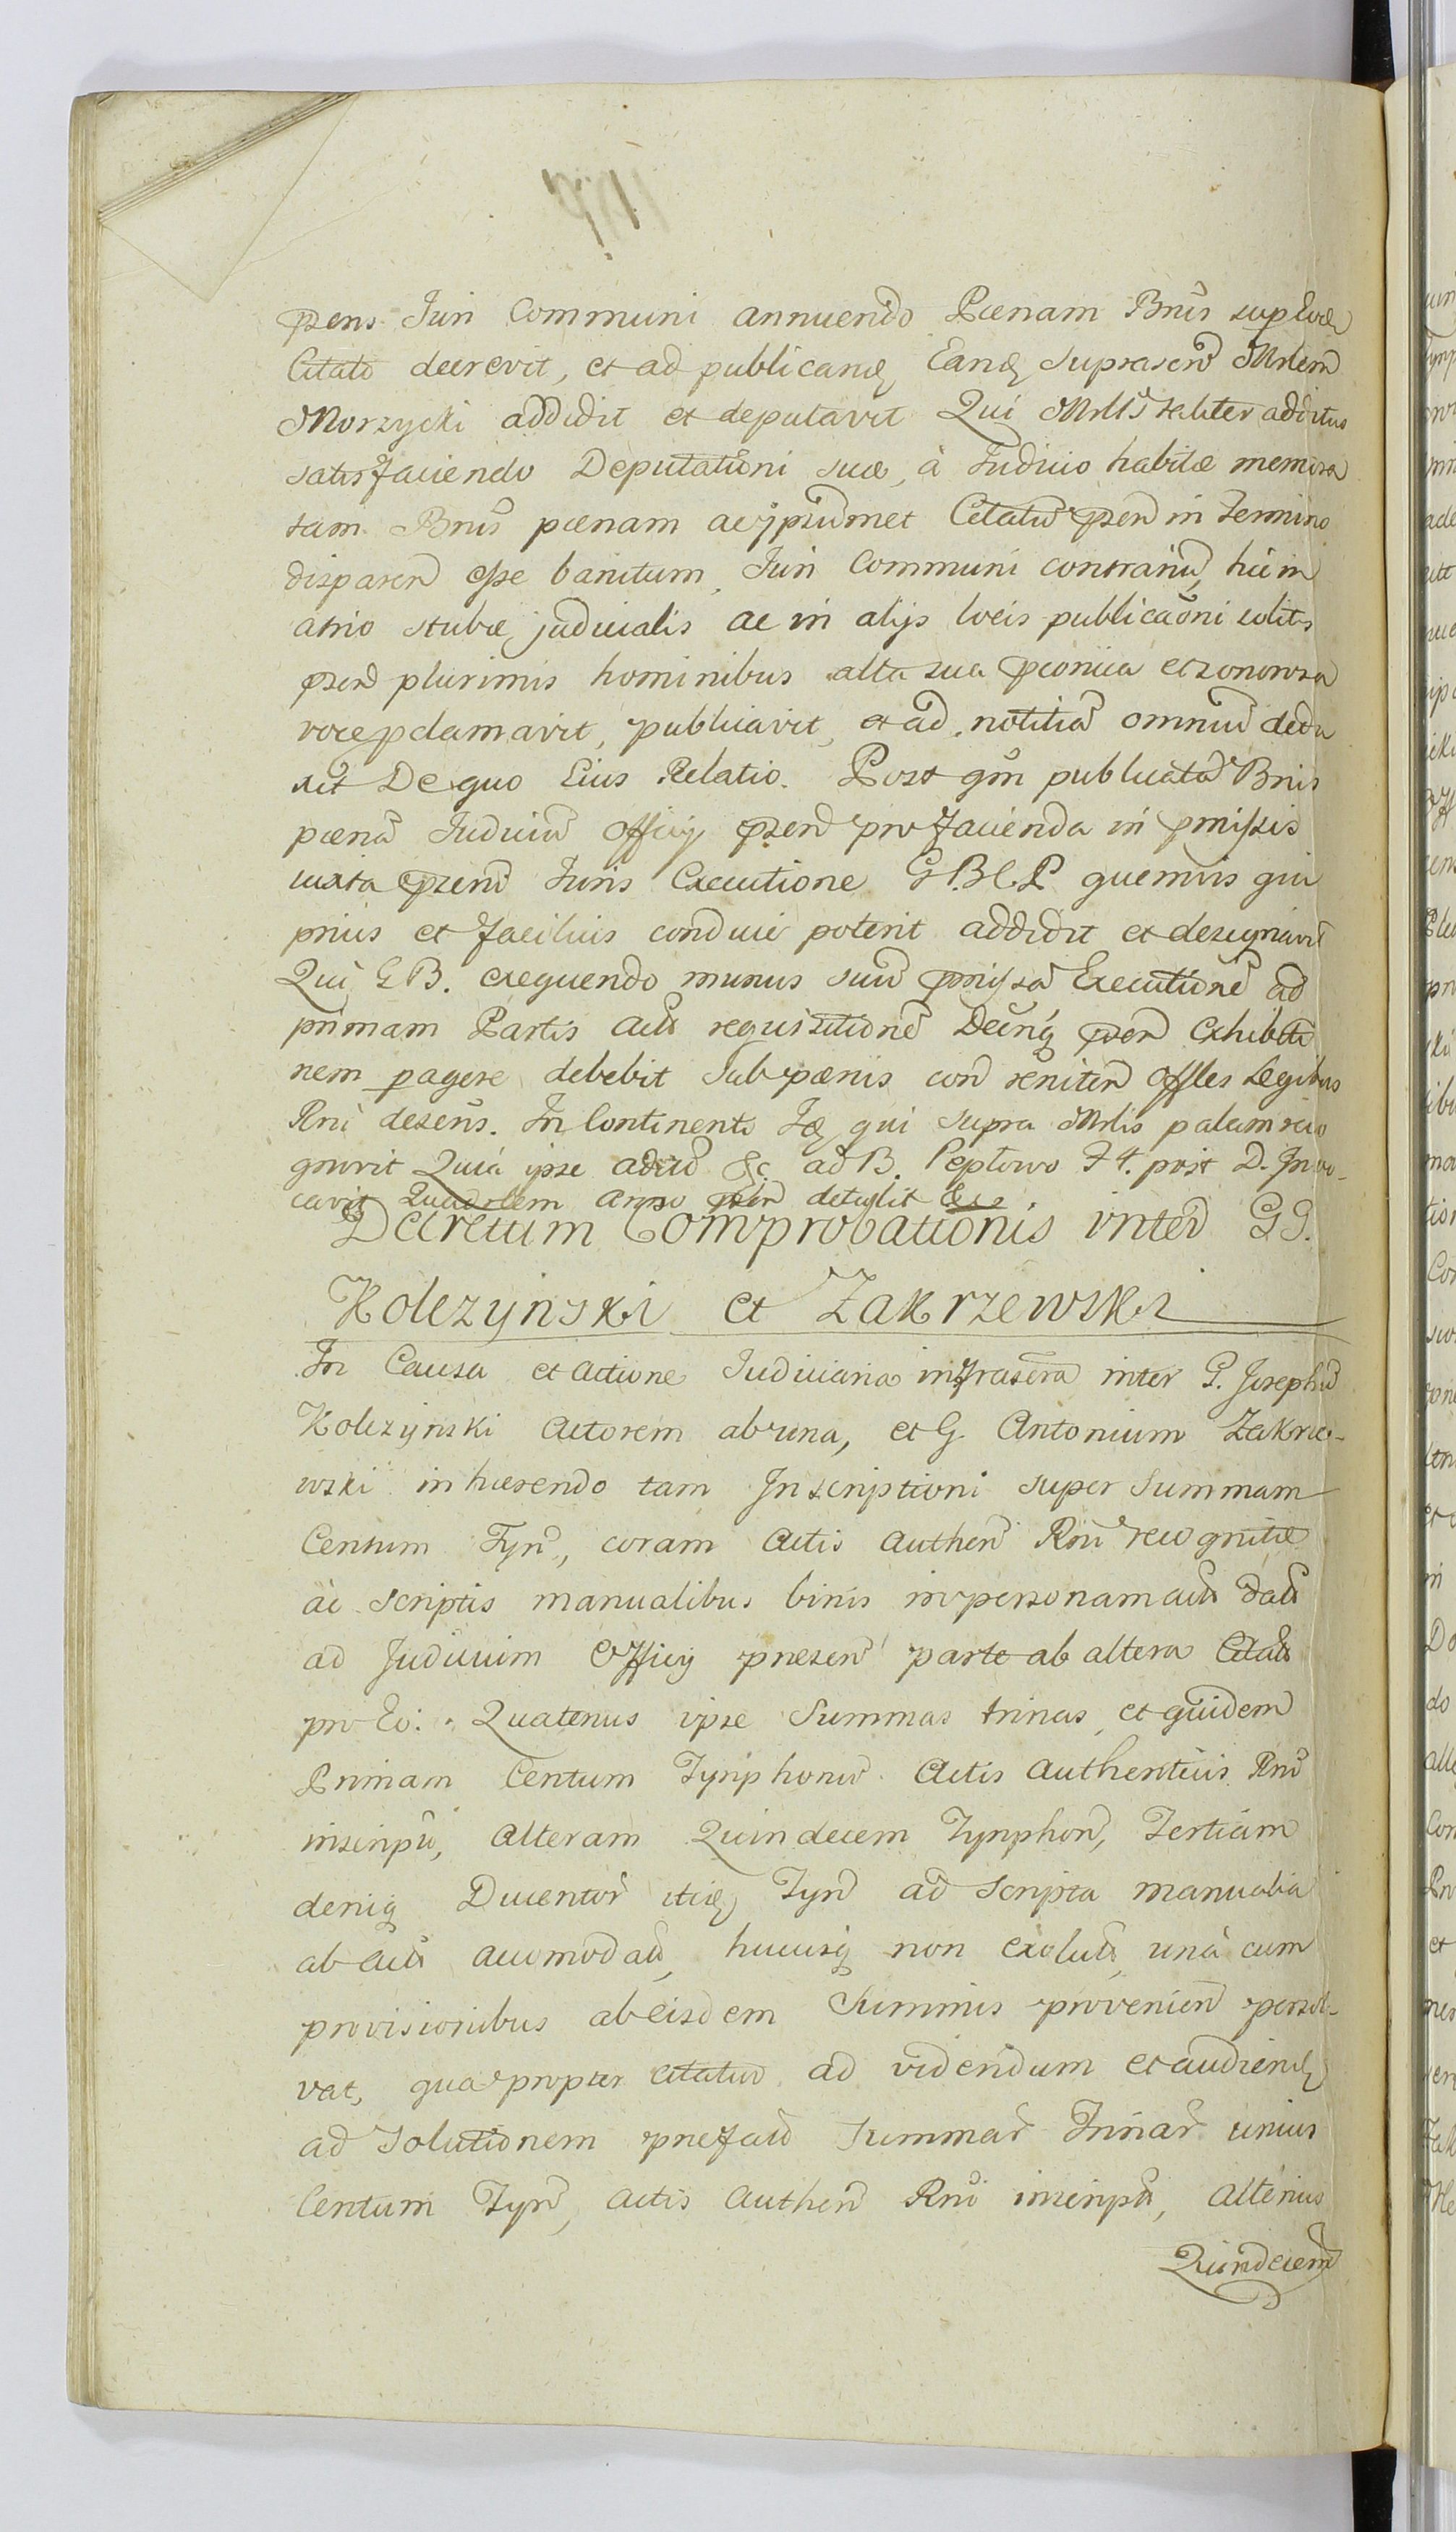 pzens Juri Communi annuendo Pœnam Bnis sup Eodē
Citato decrevit, et ad publicand, Eandę suprascrū Mrlem
Morzycki addidit et deputavit Qui Mrlis taliter additus
satisfaciendo Deputationi suæ, à Judicio habitæ memora
tam Bnis pœnam ac ipsūmet Citatū pzen in Termino
disparen esse banitum, Juri Communi contrariū, hic in
atrio stubæ judicialis ac in alijs locis publicaōni solitis
pzen plurimis hominibus alta sua pconica et sonorosa
voce pclamavit, publicavit, et ad notitiā omniū dedu
xit De quo Eius Relatio. Post qm publicatā Bnis
pœnā Judiciū Officij pzen pro facienda in pmissis
iuxta pzens Juris Executione G.B.C.P. quemvis qui
prius et facilius conduci poterit addidit et designavit
Qui GB. exequendo munus suū pmissā Executionē ad
primam Partis Actt requisitionē Decriq pzen Exhibitio
nem pagere debebit sub pœnis con reniten Offles Legibus
Rni desens. In Continenti Id, qui supra Mrlis palam reco
gnovit Quia ipse actū &c. ad B. Peptowo F 4. post D. Invo-
cavit Quadrlem Anno pzen detulit &c.
Decretum Comprobationis inter GG.
Kolczynski et Zakrzewski
In Causa et Actione Judiciaria infrascrā inter G. Josephū
Kolczynski Actorem ab una, et G. Antonium Zakrze-
wski inhærendo tam Inscriptioni super Summam
Centum Tyn, coram Actis Authen Rni recognitæ
ac Scriptis manualibus binis in personam actt datt
ad Judicium Officij præsen parte ab altera Citatt
pro Eo: Quatenus ipse Summas trinas, et quidem
Primam Centum Tynphonū Actis Authenticis Rni
inscrip, Alteram Quindecem Tynphon, Tertiam
deniq Ducentor itid Tyn ad Scripta manualia
ab Actt accomodatt, hucusq non exolutt, una cum
provisionibus ab eisdem Summis provenien persol-
vat, qua propter citatū ad videndum et audiend
ad Solutionem præfatt Summar Trinar unius
Centum Tyn, Actis Authen Rni inscript, Alterius
Quindecem